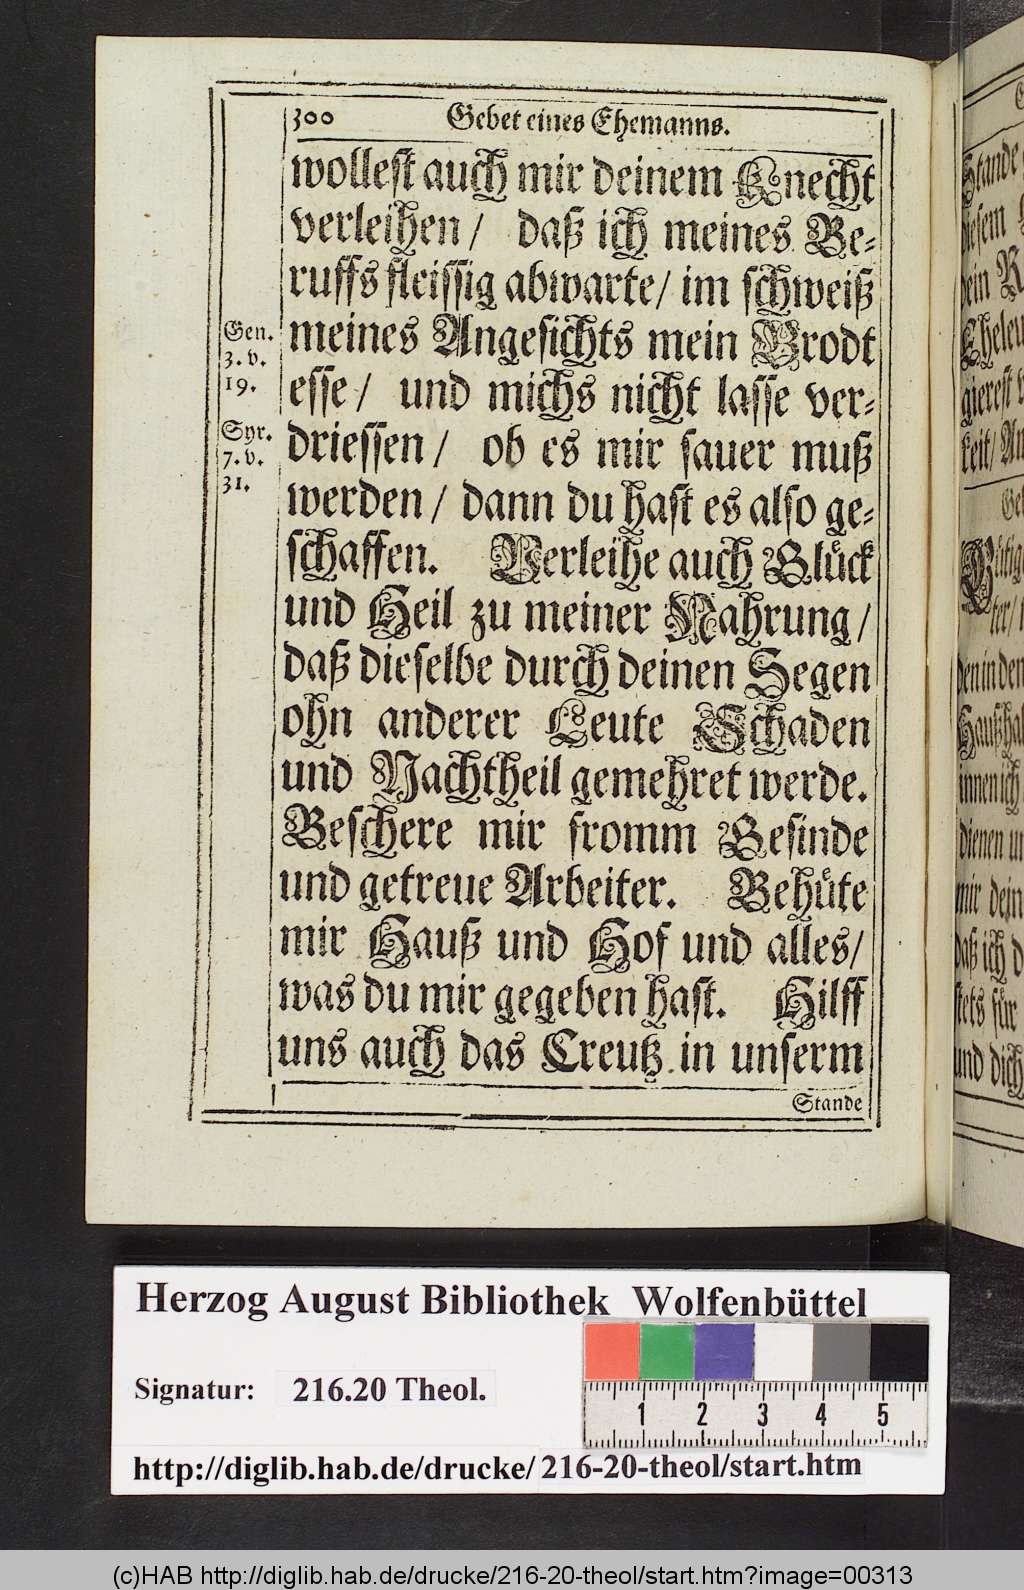 300 Gebet eines Ehemanns.
wollest auch mir deinem Knecht
verleihen / daß ich meines Be-
ruffs fleissig abwarte / im schweiß
meines Angesichts mein Brodt
esse / und michs nicht lasse ver-
driessen / ob es mir sauer muß
werden / dann du hast es also ge-
schaffen. Verleihe auch Glück
und Heil zu meiner Nahrung /
daß dieselbe durch deinen Segen
ohn anderer Leute Schaden
und Nachtheil gemehret werde.
Beschere mir fromm Gesinde
und getreue Arbeiter. Behüte
mir Hauß und Hof und alles /
was du mir gegeben hast. Hilff
uns auch das Creutz in unserm
Stande
Gen.
3. v.
19.
Syr.
7. v.
31.
Stande
diesem
dein
Eheleu
gierest
keit / An
Gütige
ter /
den in den
Haußhal
innen ich
dienen un
mir dein
daß ich d
stets für
und dich
Herzog August Bibliothek Wolfenbüttel
Signatur: 216.20 Theol.
1 2 3 4 5
http://diglib.hab.de/drucke/216-20-theol/start.htm
(c)HAB http://diglib.hab.de/drucke/216-20-theol/start.htm?image=00313